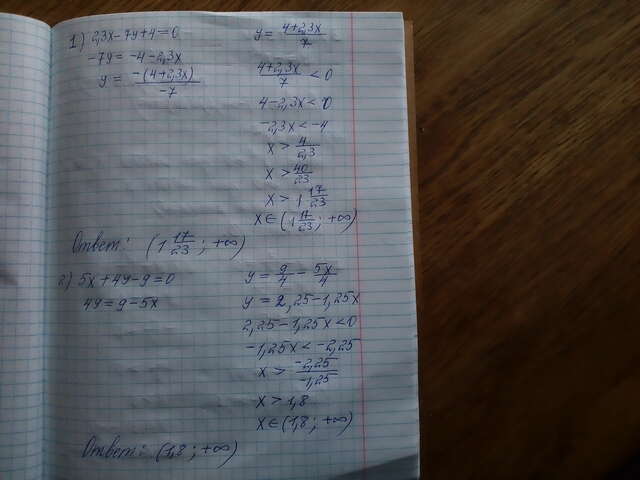 1) 2,3x-7y+4=0
-7y = -4-2,3x
y = -(4+2,3x)/-7
y = 4+2,3x/7
4+2,3x/7 < 0
4-2,3x < 0
-2,3x < -4
x > 4/2,3
x > 40/23
x > 1 17/23
x ∈ (1 17/23 ; +∞)
Ответ: (1 17/23 ; +∞)
2) 5x+4y-9=0
4y = 9-5x
y = 9/4 - 5x/4
y = 2,25-1,25x
2,25-1,25x<0
-1,25x < -2,25
x > -2,25/-1,25
x > 1,8
x ∈ (1,8 ; +∞)
Ответ: (1,8 ; +∞)